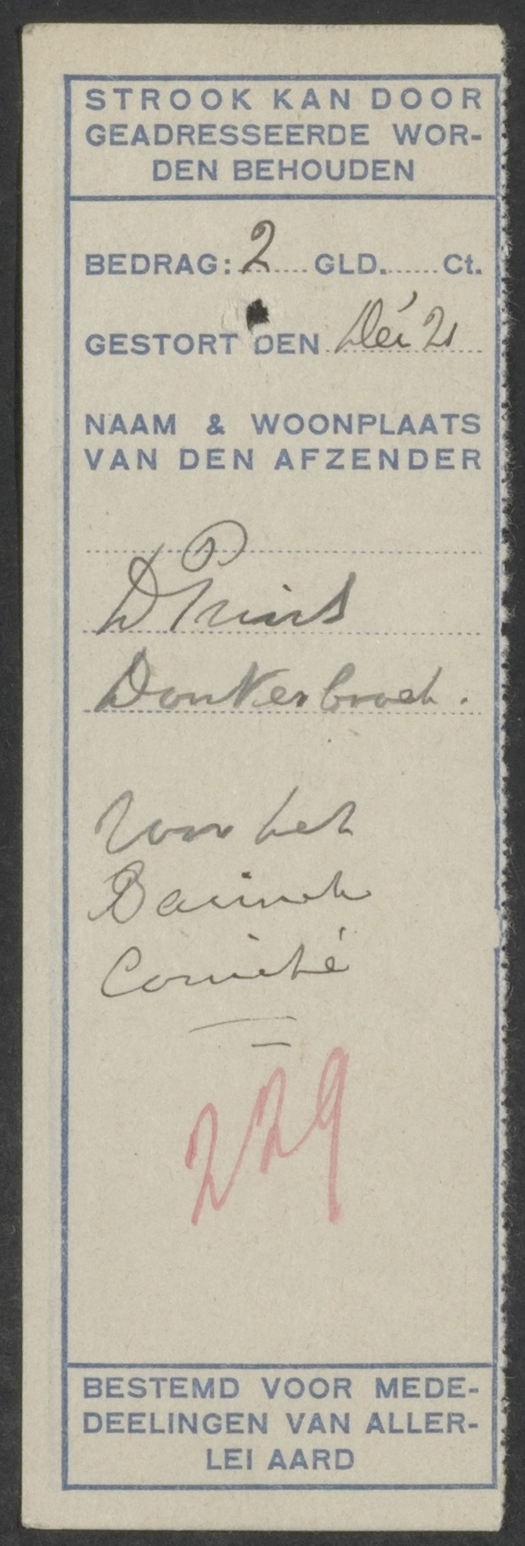 STROOK KAN DOOR
GEADRESSEERDE WOR-
DEN BEHOUDEN
BEDRAG: 2 GLD. Ct.
GESTORT DEN 21
NAAM & WOONPLAATS
VAN DEN AFZENDER
D Prins
Donkerbroek.
Van het
Comité
229
BESTEMD VOOR MEDE-
DEELINGEN VAN ALLER-
LEI AARD